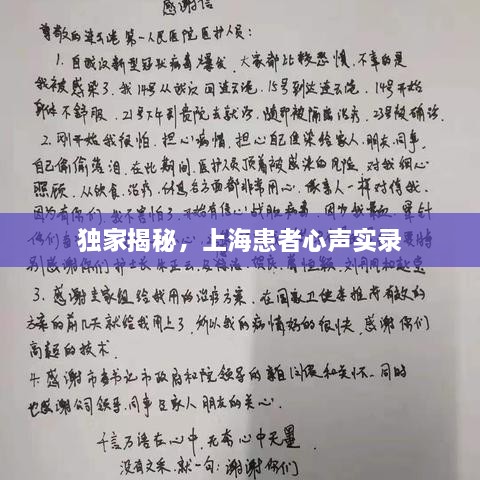 感谢信
尊敬的连云港第一人民医院医护人员：
1. 自武汉新型冠状病毒爆发，大家都比较恐慌，不幸的是
我被感染了，我14号从武汉回连云港，15号到达连云港，14号开始
身体不舒服，21号下午到贵院去就诊，随即被隔离治疗，23号被确诊。
2. 刚开始我很怕，担心病情，担心自己传染给家人，朋友，同事，
自己偷偷落泪，在此期间，医护人员顶着被感染的风险，对我细心
照顾，从饮食，治疗，休息各方面都非常用心，像亲人一样对待我，
独家揭秘，上海患者心声实录
3. 感谢专家组给我用的治疗方案，在国家卫健委推荐有效的
方案的前几天就给我用上了，所以我的病情好的很快，感谢你们
高超的技术。
4. 感谢市委书记市政府和院领导的亲自问候和关怀，同时
也感谢公司领导，同事及家人朋友的关心。
千言万语在心中，无奈心中无墨
没有文采，就一句：谢谢你们